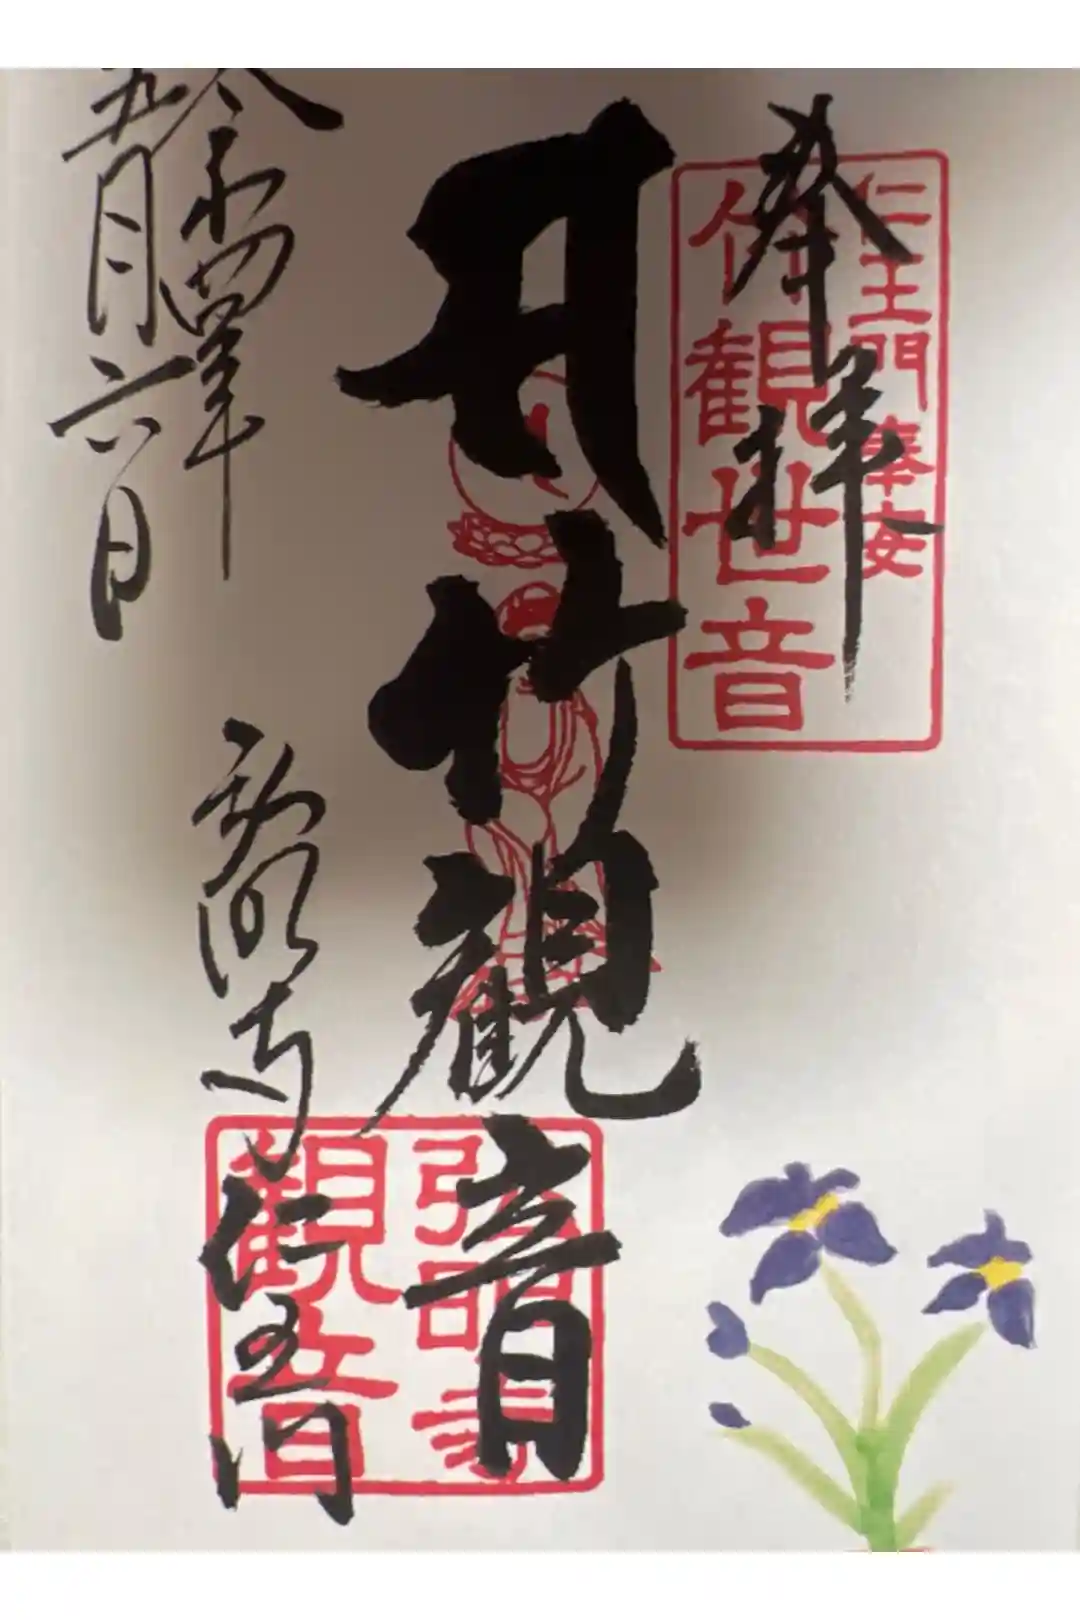 奉拝
仁王門奉安
竹観世音
竹観音
弘明寺
観音
令和四年
五月六日
弘明寺仁王門